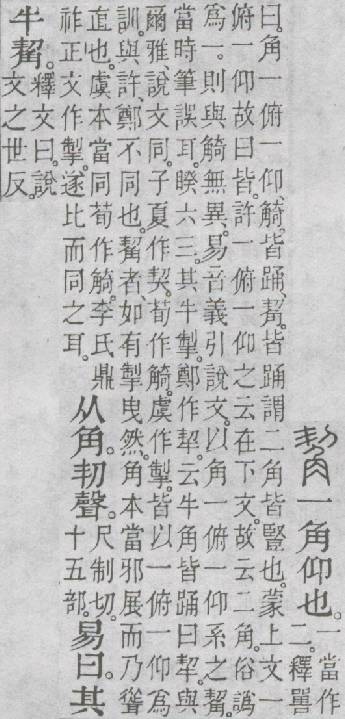 觢一角仰也。
一當作
二。釋嘼
曰。角一俯一仰、觭。皆踊、觢。皆踊謂二角皆豎也。蒙上文一
俯一仰故曰皆。許一俯一仰之云在下文。故云二角。俗譌
爲一。則與觭無異。易音義引說文。以角一俯一仰系之觢。
當時筆誤耳。睽六三。其牛掣。鄭作㸷。云牛角皆踊曰㸷。與
爾雅、說文同。子夏作契。荀作觭。虞作掣。皆以一俯一仰爲
訓。與許、鄭不同也。觢者、如有掣曳然。角本當邪展而乃聳
直也。虞本當同荀作觭。李氏鼎
祚正文作掣。遂比而同之耳。
从角。㓞聲。
尺制切。
十五部。
易曰。其
牛觢。
釋文曰。說
文之世反。